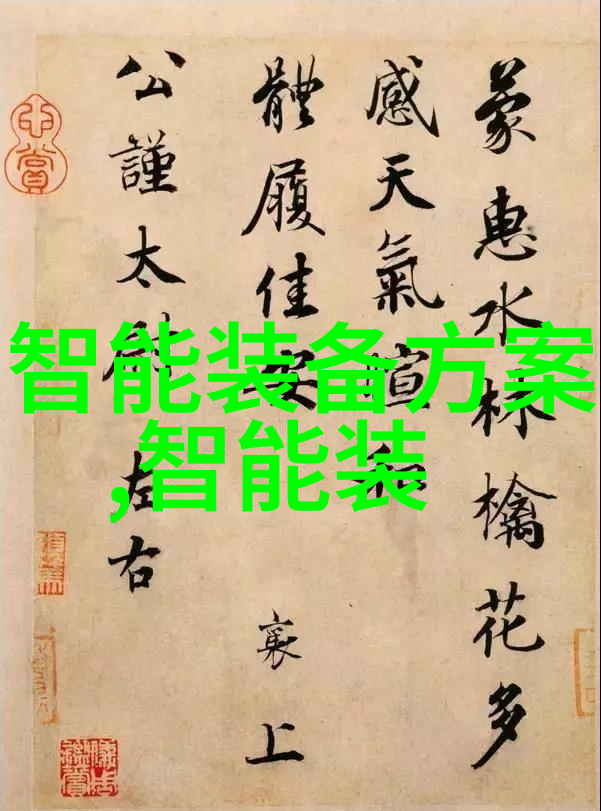 蒙惠水林檎花多
感天氣暄和
體履佳安
襄上
公謹太尉
左右
智能装备方案
,智能装